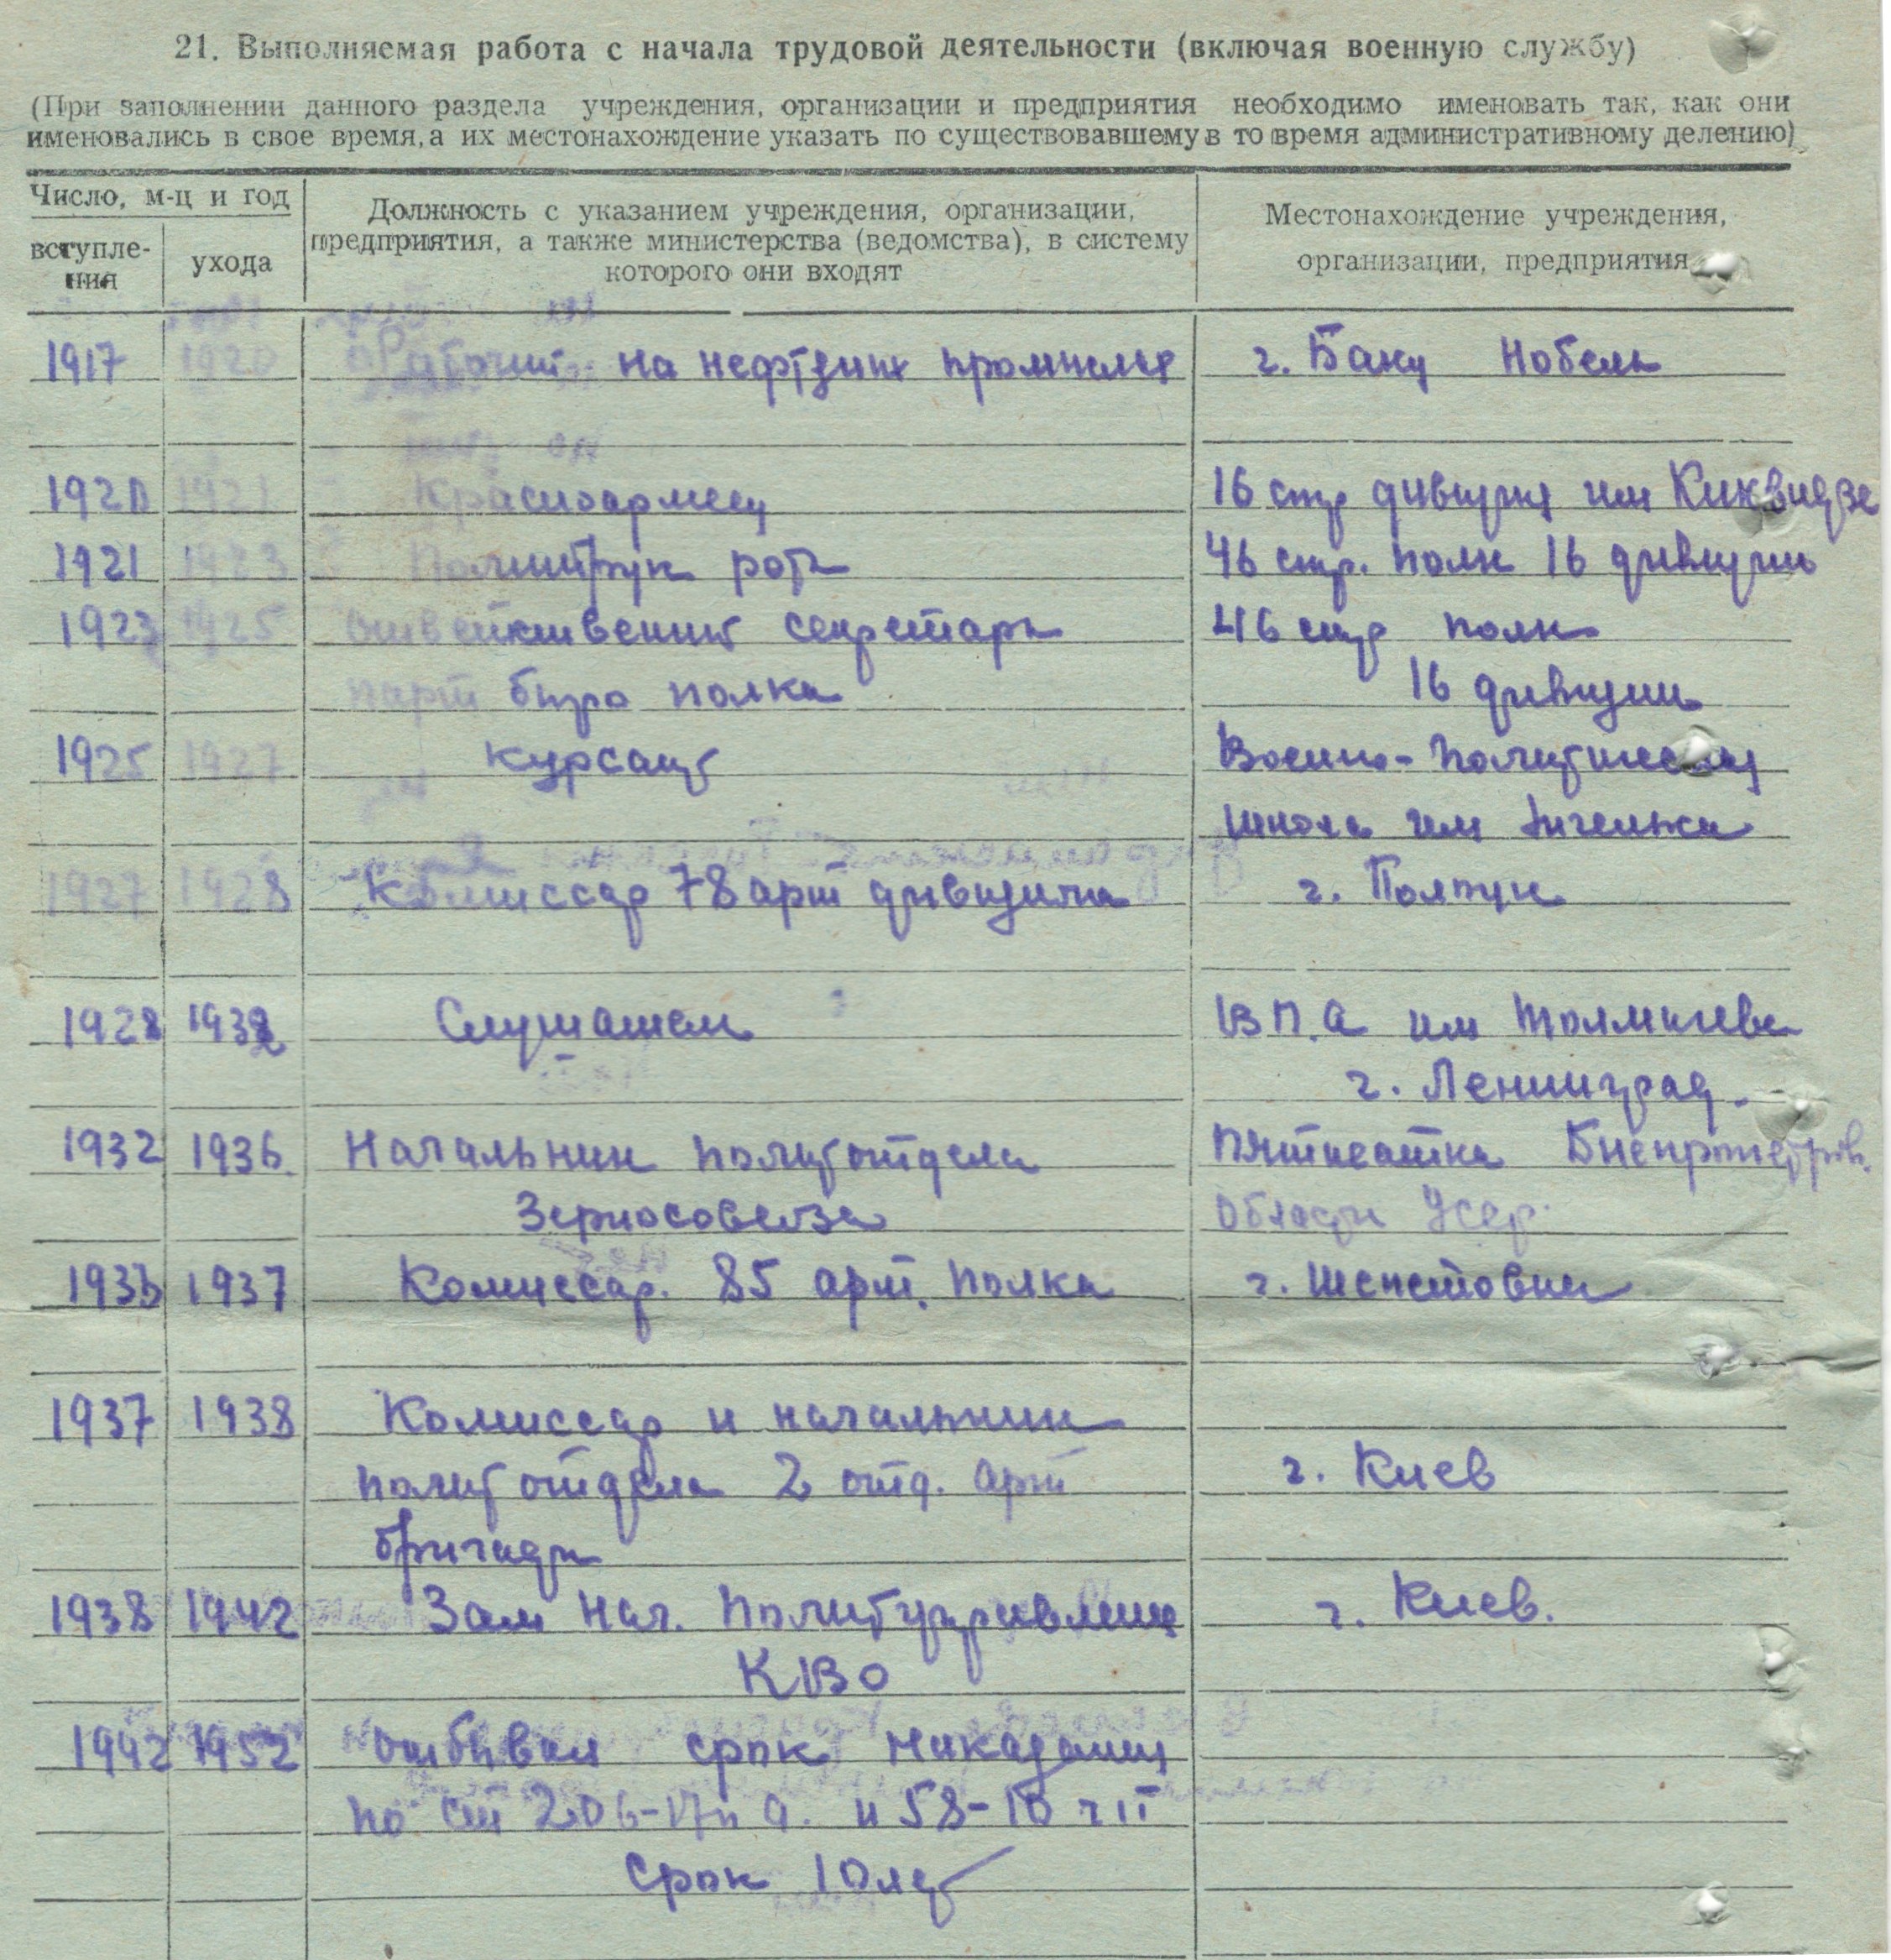 21. Выполняемая работа с начала трудовой деятельности (включая военную службу)
(При заполнении данного раздела учреждения, организации и предприятия необходимо именовать так, как они
именовались в свое время, а их местонахождение указать по существовавшему в то время административному делению)
Число, м-ц и год
вступле-
ния
ухода
Должность с указанием учреждения, организации,
предприятия, а также министерства (ведомства), в систему
которого они входят
Местонахождение учреждения,
организации, предприятия
1917 1920 Рабочий на нефтяных промыслах г. Баку Нобель
1920 1921 Красноармеец 16 стр дивизия им Киквидзе
1921 1923 Политрук роты 46 стр. полк 16 дивизии
1923 1925 ответственный секретарь 46 стр полк
парт бюро полка 16 дивизии
1925 1927 курсант Военно-Политическая
школа им Энгельса
1927 1928 Комиссар 78 арт дивизиона г.
1928 1932 Слушатель В.П.А им Толмачева
г. Ленинград.
1932 1936 Начальник политотдела Пятихатка Днепропетров.
Зерносовхоза области Усср.
1936 1937 Комиссар. 85 арт. полка г. Шепетовка
1937 1938 Комиссар и начальник
политотдела 2 отд. арт г. Киев
бригады
1938 1942 Зам Нач. Политуправления г. Киев.
КВО
1942 1952 отбывал срок наказания
по ст 206-17п а. и 58-10 ч II
срок 10 лет